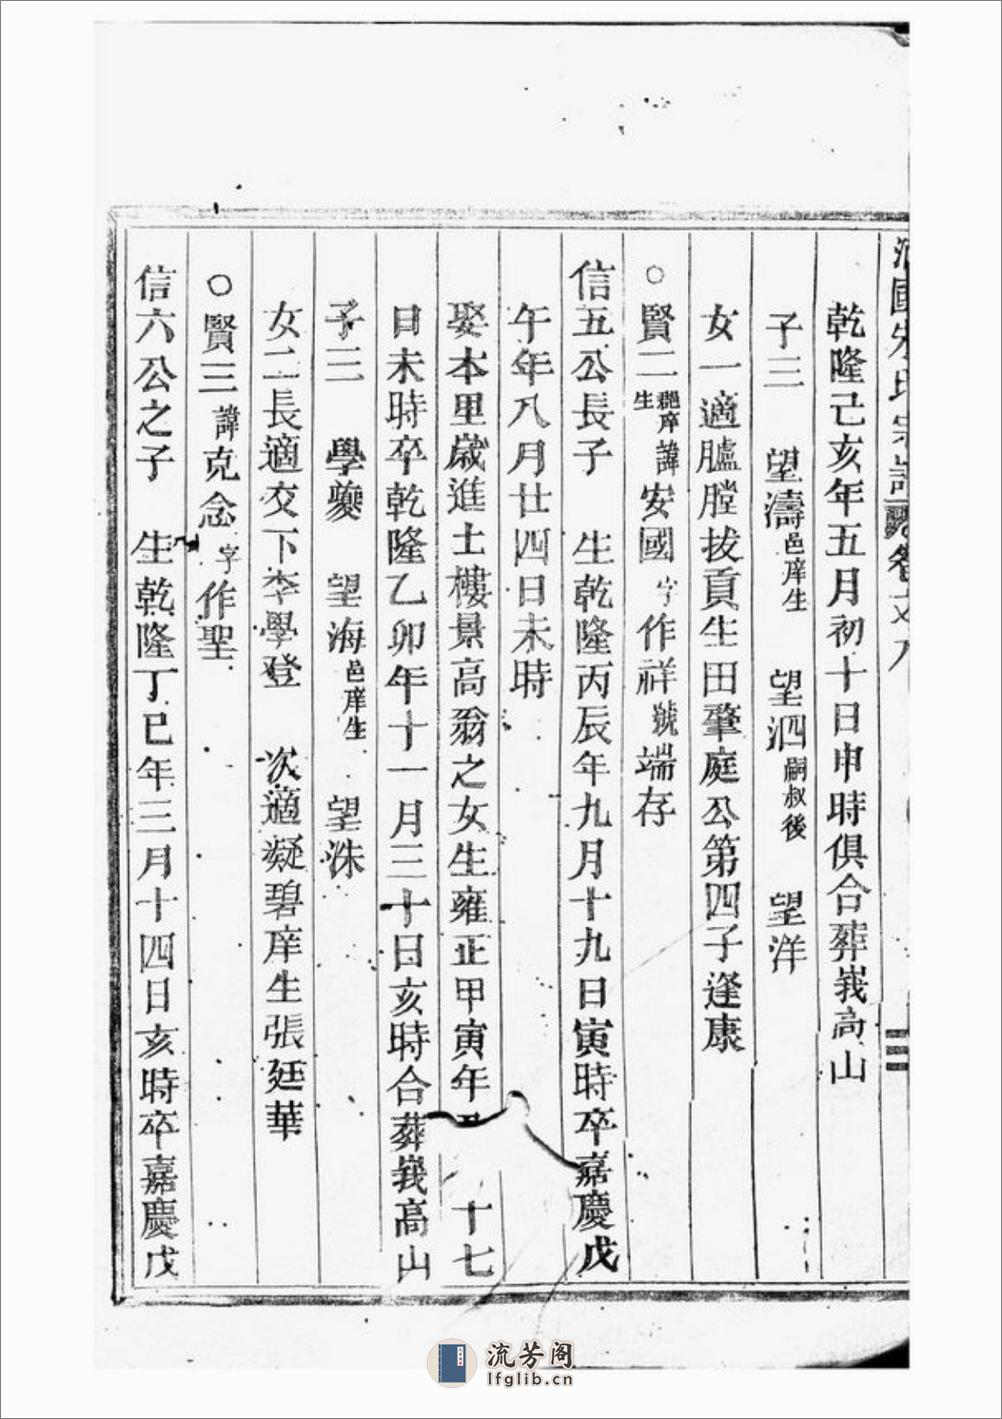 國朱氏宗譜 卷之八
乾隆己亥年五月初十日申時俱合葬峩高山
子三 望濤邑庠生 望泗嗣叔後 望洋
女一適臚膛拔貢生田肇庭公第四子逢康
○賢二郡庠生諱安國字作祥號端存
信五公長子 生乾隆丙辰年九月十九日寅時卒嘉慶戊
午年八月廿四日未時
娶本里歲進士樓景高翁之女生雍正甲寅年 十七
日未時卒乾隆乙卯年十一月三十日亥時合葬峩高山
子三 學夔 望海邑庠生 望洙
女二長適交下李學登 次適凝碧庠生張廷華
○賢三諱克念字作聖
信六公之子 生乾隆丁巳年三月十四日亥時卒嘉慶戊
流芳阁
lfglib.cn